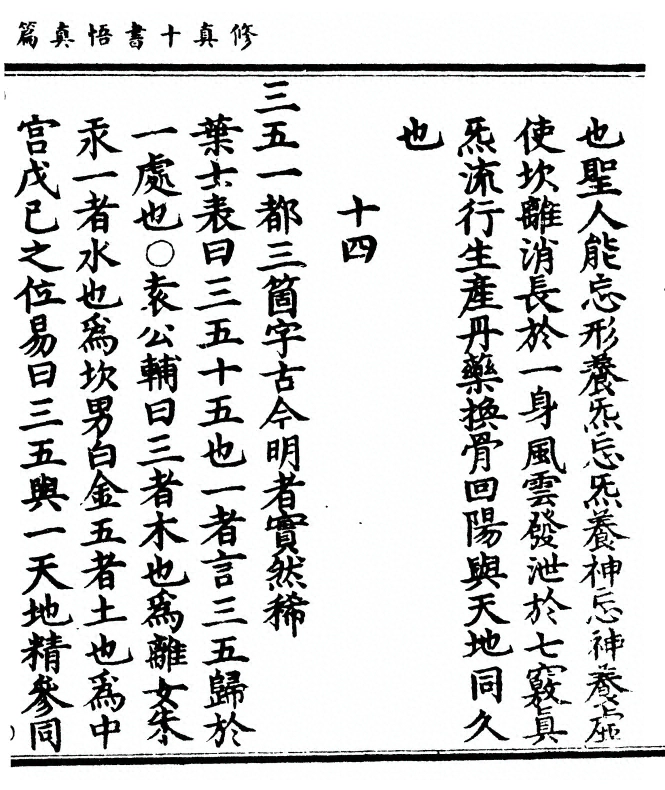 修真十書悟真篇
也聖人能忘形養炁忘炁養神忘神養虛
使坎離消長於一身風雲發泄於七竅眞
炁流行生產丹藥換骨回陽與天地同久
也
十四
三五一都三箇字古今明者實然稀
葉士表曰三五十五也一者言三五歸於
一處也〇袁公輔曰三者木也爲離女朱
汞一者水也爲坎男白金五者土也爲中
宮戊已之位易曰三五與一天地精參同